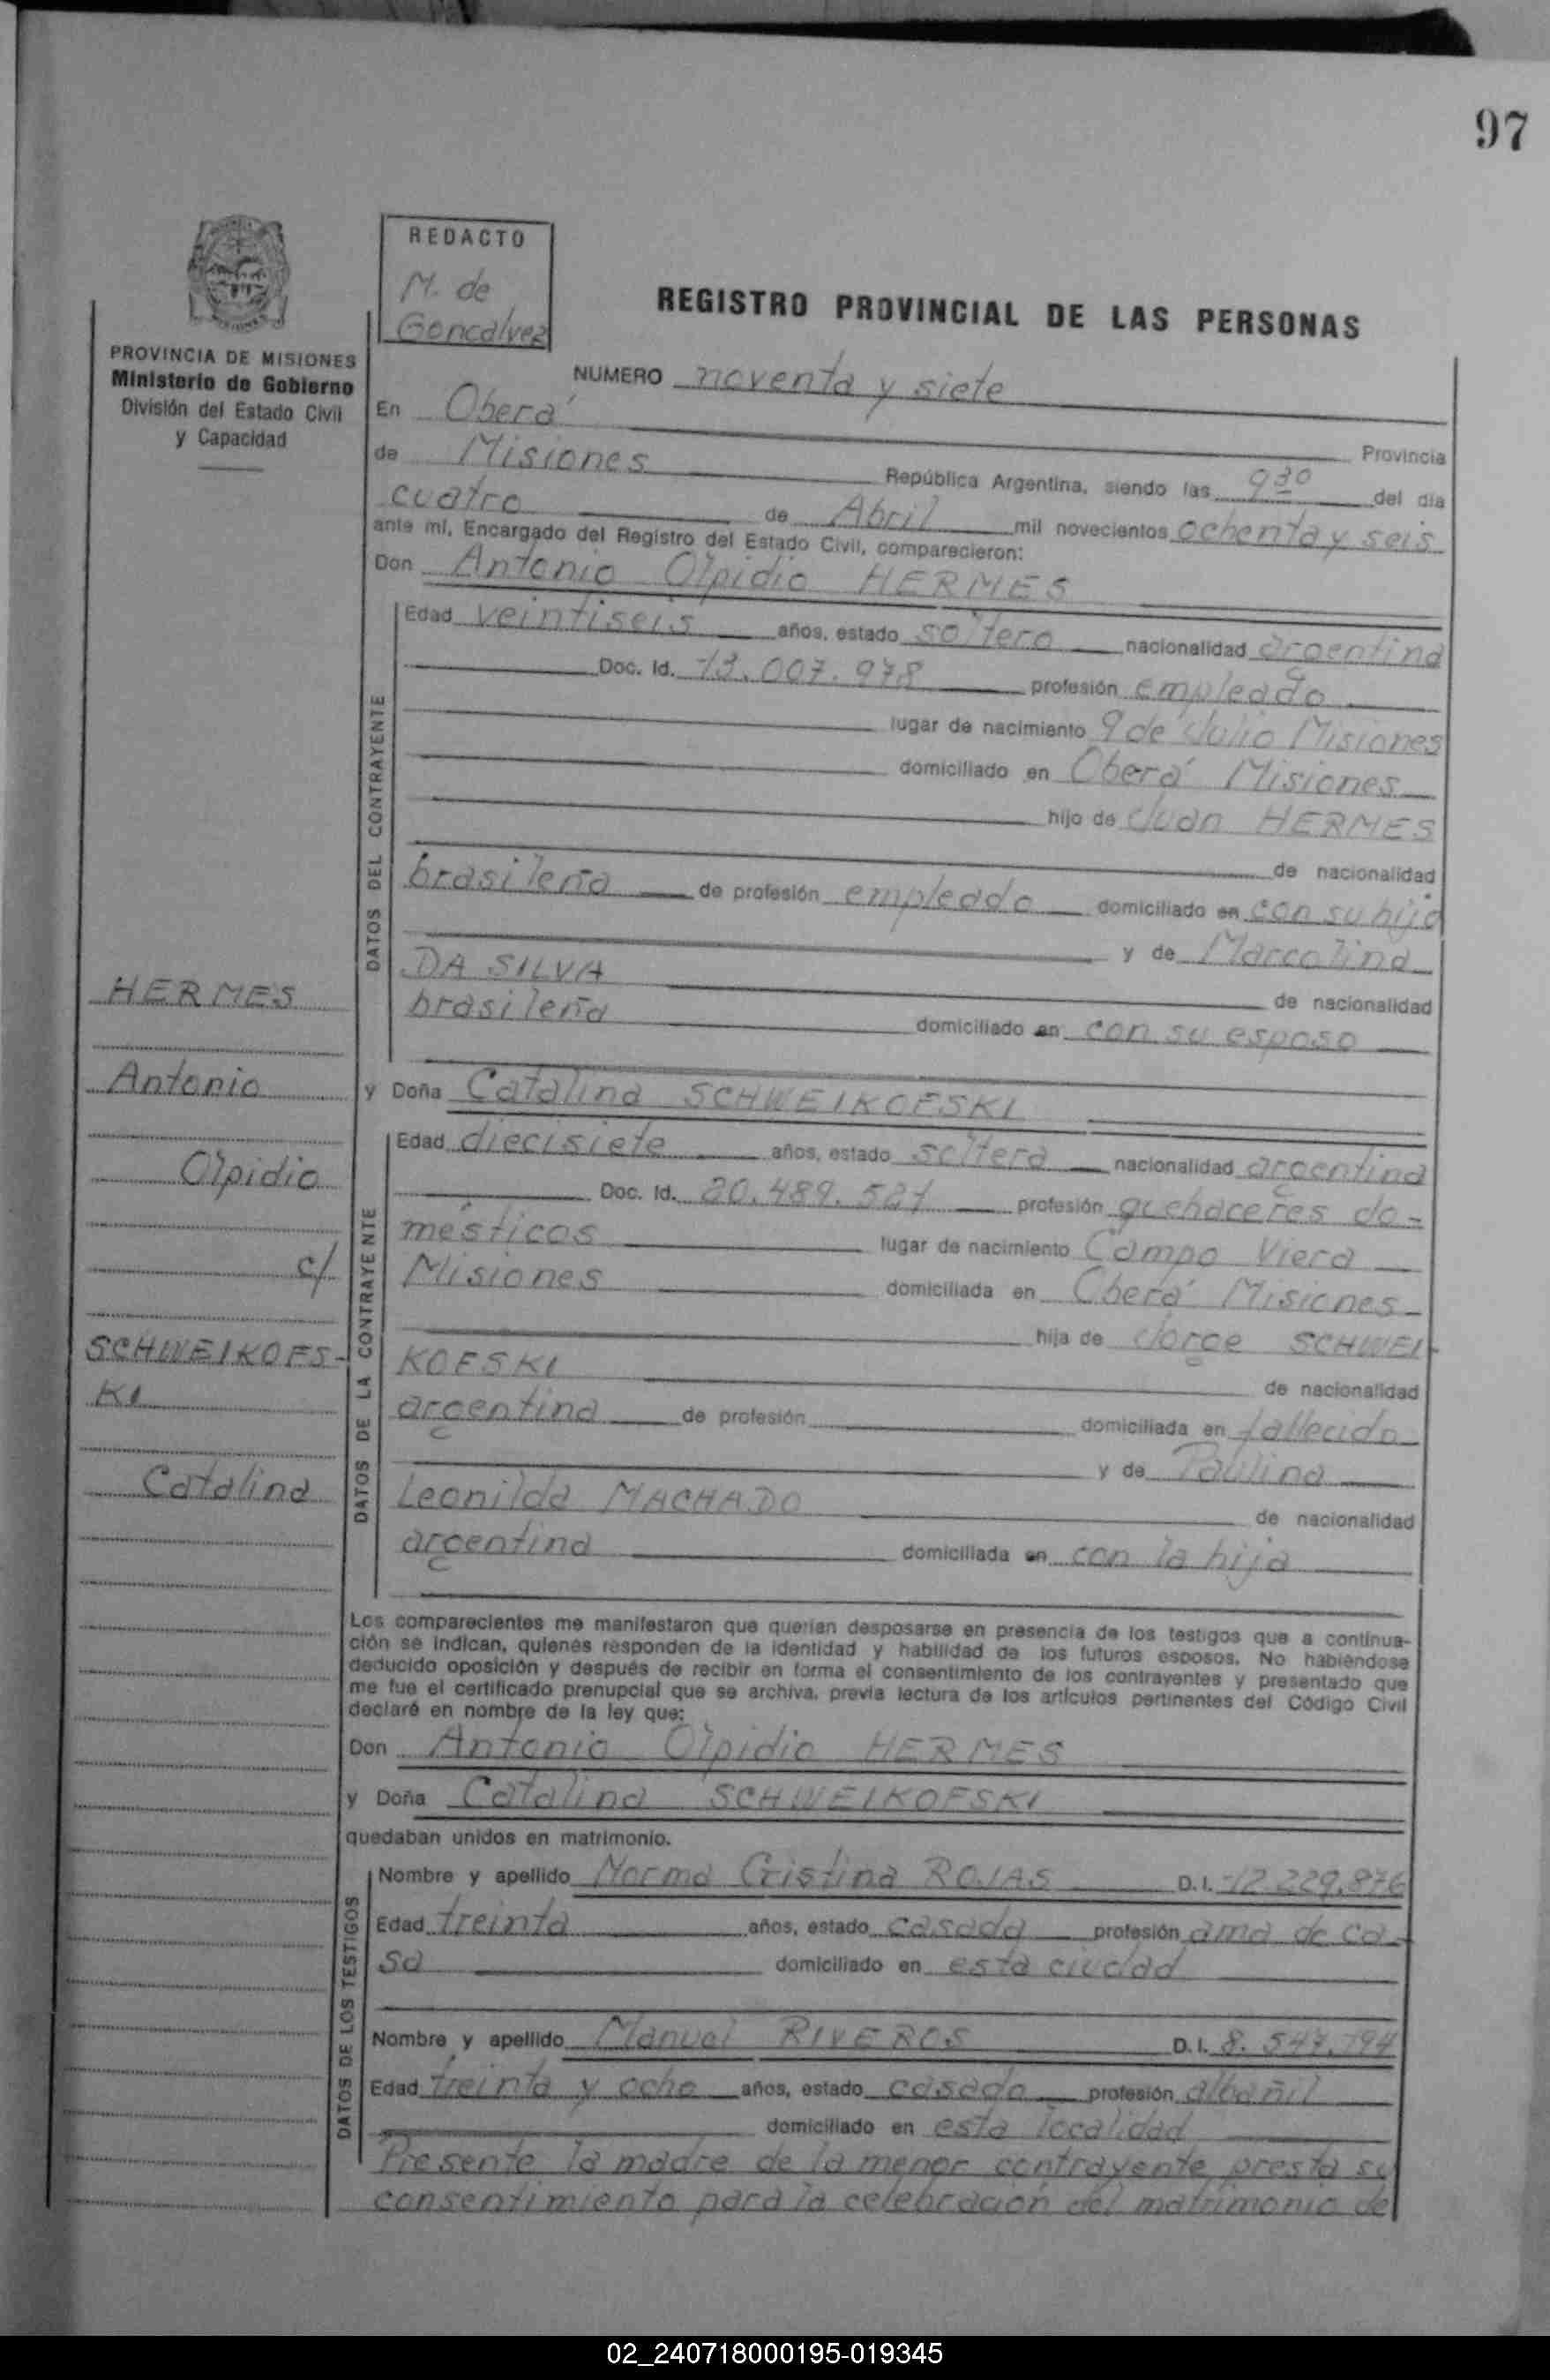 97
REDACTO
M. de
Goncalvez
REGISTRO PROVINCIAL DE LAS PERSONAS
PROVINCIA DE MISIONES
Ministerio de Gobierno
División del Estado Civil
y Capacidad
NUMERO noventa y siete
En Oberá
Provincia
de Misiones República Argentina, siendo las 9 30 del día
cuatro de Abril mil novecientos ochenta y seis
ante mí, Encargado del Registro del Estado Civil, comparecieron:
Don Antonio Olpidio HERMES
DATOS DEL CONTRAYENTE
Edad veintiseis años, estado soltero nacionalidad argentina
Doc. Id. 13.007.978 profesión empleado
lugar de nacimiento 9 de Julio Misiones
domiciliado en Oberá Misiones
hijo de Juan HERMES
de nacionalidad
brasileña de profesión empleado domiciliado en con su hijo
y de Marcolina
DA SILVA de nacionalidad
brasileña domiciliado en con su esposo
y Doña Catalina SCHWEIKOFSKI
DATOS DE LA CONTRAYENTE
Edad diecisiete años, estado soltera nacionalidad argentina
Doc. Id. 20.489.521 profesión quehaceres do-
mésticos lugar de nacimiento Campo Viera
Misiones domiciliada en Oberá Misiones
hija de Jorge SCHWEI-
KOFSKI de nacionalidad
argentina de profesión domiciliada en fallecido
y de Paulina
Leonilda MACHADO de nacionalidad
argentina domiciliada en con la hija
HERMES
Antonio
Olpidio
c/
SCHWEIKOFS-
KI
Catalina
Los comparecientes me manifestaron que querían desposarse en presencia de los testigos que a continua-
ción se indican, quienes responden de la identidad y habilidad de los futuros esposos. No habiéndose
deducido oposición y después de recibir en forma el consentimiento de los contrayentes y presentado que
me fue el certificado prenupcial que se archiva, previa lectura de los artículos pertinentes del Código Civil
declaré en nombre de la ley que:
Don Antonio Olpidio HERMES
y Doña Catalina SCHWEIKOFSKI
quedaban unidos en matrimonio.
DATOS DE LOS TESTIGOS
Nombre y apellido Norma Cristina ROJAS D.I. 12.229.876
Edad treinta años, estado casada profesión ama de ca-
sa domiciliado en esta ciudad
Nombre y apellido Manuel RIVEROS D.I. 8.547.194
Edad treinta y ocho años, estado casado profesión albañil
domiciliado en esta localidad
Presente la madre de la menor contrayente presta su
consentimiento para la celebración del matrimonio de
02_240718000195-019345